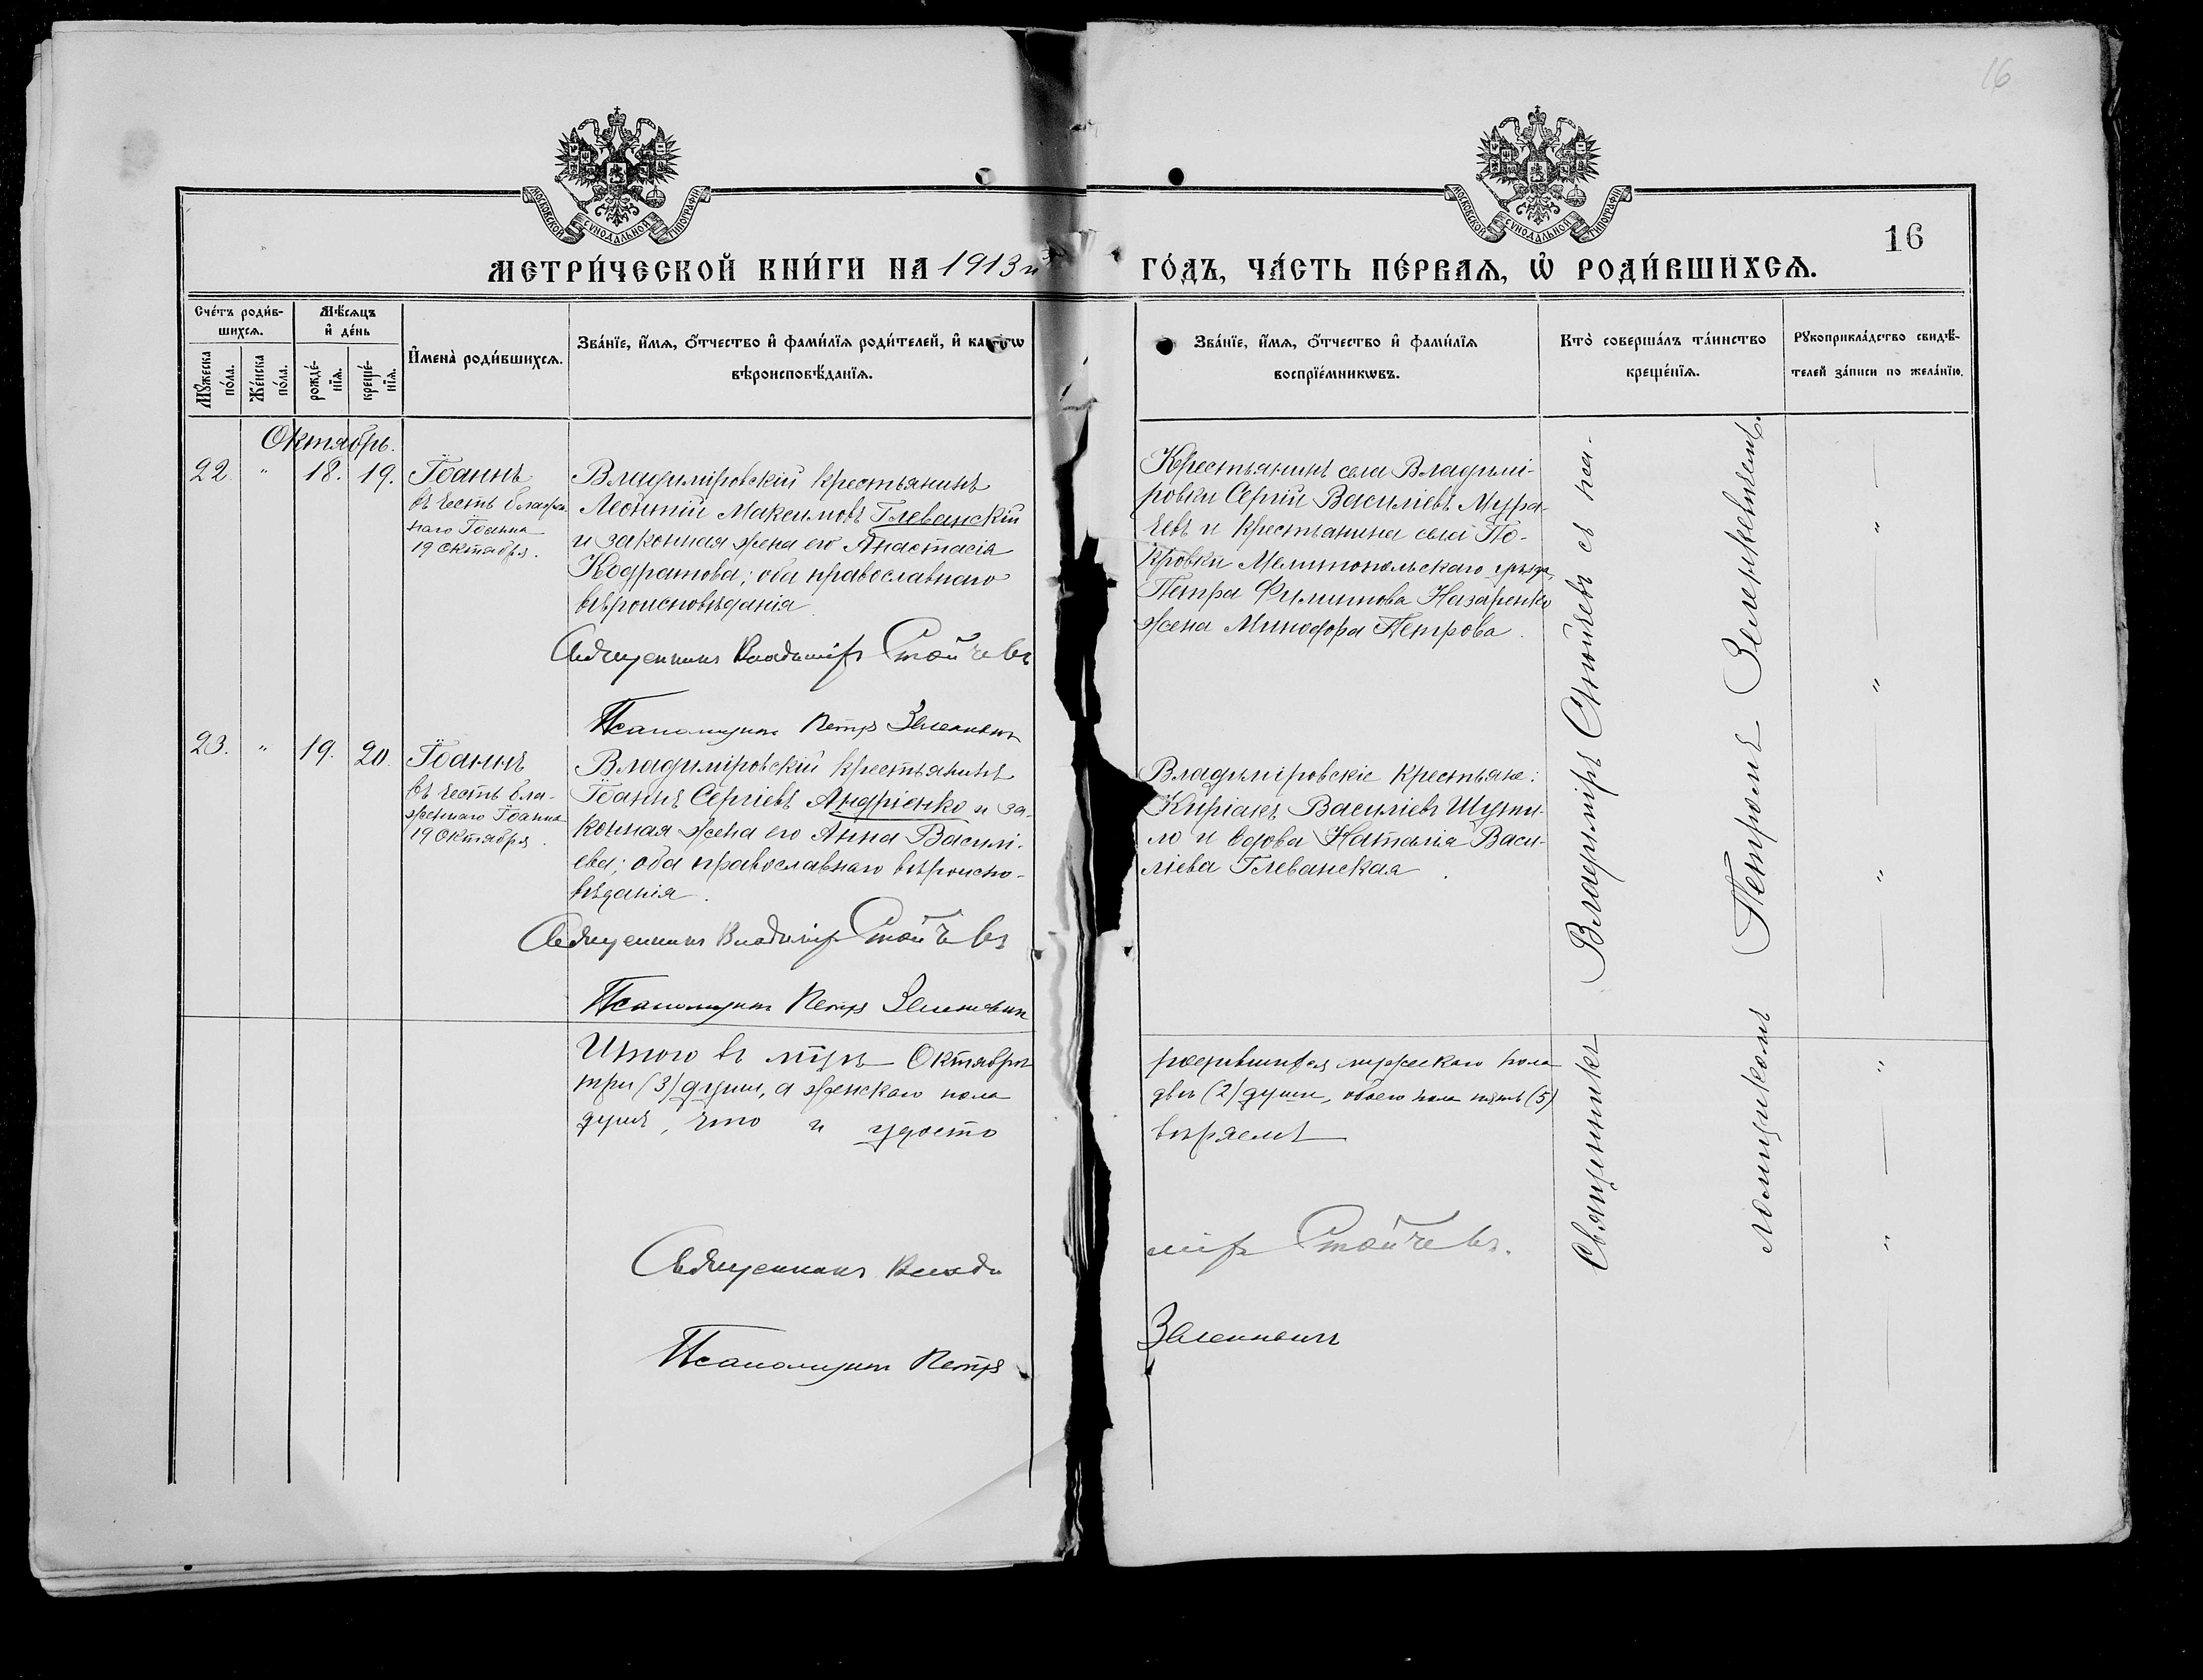 16
МОСКОВСКОЙ СѴНОДАЛЬНОЙ ТИПОГРАФІИ
МОСКОВСКОЙ СѴНОДАЛЬНОЙ ТИПОГРАФІИ
16
МЕТРИ́ЧЕСКОЙ КНИ́ГИ НА 1913й
ГО́ДЪ, ЧА́СТЬ ПЕ́РВАѦ, Ѡ҆ РОДИ́ВШИХСѦ.
Сче́тъ роди́в-
шихсѧ.
Мꙋ́жеска
по́ла.
Же́нска
по́ла.
Мѣ́сѧцъ
и҆ де́нь
рожде́-
нїѧ.
креще́-
нїѧ.
И҆мена̀ роди́вшихсѧ.
Зва́нїе, и҆́мѧ, ѻ҆́тчество и҆ фами́лїѧ роди́телей, и҆
вѣроисповѣ́данїѧ.
Зва́нїе, и҆́мѧ, ѻ҆́тчество и҆ фами́лїѧ
воспрїе́мникѡвъ.
Кто̀ соверша́лъ та́инство
креще́нїѧ.
Рꙋкоприкла́дство свидѣ́-
телей за́писи по жела́нїю.
Октябрь.
22. " 18. 19. Іоаннъ
въ честь блажен-
наго Іоанна
19 октября.
Владиміровскій крестьянинъ
Леонтій Максимовъ Глеванскій
и законная жена его Анастасія
Кодратова; оба православнаго
вѣроисповѣданія.
Священникъ Владиміръ Стойчевъ
Псаломщикъ Петръ Зеленкевичъ
Крестьянинъ села Владимі-
ровки Сергій Василіевъ Мура-
чевъ и крестьянина села По-
кровки Мелитопольскаго уѣзда,
Петра Филиппова Назаренко
жена Минодора Петрова.
23. " 19. 20. Іоаннъ
въ честь бла-
женнаго Іоанна
19 октября.
Владиміровскій крестьянинъ
Іоаннъ Сергіевъ Андріенко и за-
конная жена его Анна Васили-
ева; оба православнаго вѣроиспо-
вѣданія.
Священникъ Владиміръ Стойчевъ
Псаломщикъ Петръ Зеленкевичъ
Владиміровскіе крестьяне:
Киріакъ Василіевъ Шути-
ло и вдова Наталія Васи-
ліева Глеванская.
Священникъ Владиміръ Стойчевъ съ пса-
ломщикомъ Петромъ Зеленкевичемъ.
Итого въ м-цѣ Октябрѣ
три (3) души, а женскаго пола
душъ, что и удосто
родившихся мужескаго пола
двѣ (2) души, обоего пола пять (5)
вѣряемъ
Священникъ Влади
міръ Стойчевъ.
Псаломщикъ Петръ
Зеленкевичъ